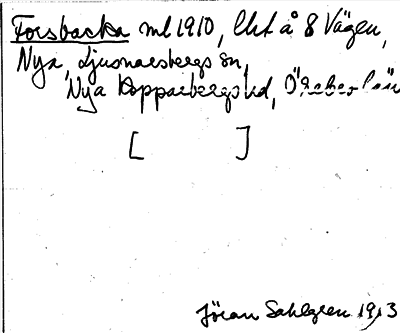 Forsbacka ml 1910, Uht å 8 Vägen,
Nya, Ljusnarsbergs sn,
Nya Kopparbergs hd, Örebro län
[ ]
Jöran Sahlgren 1913